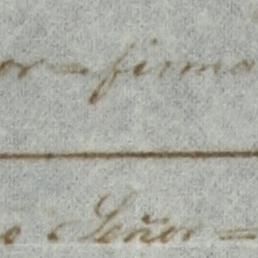 or = firma
o Señor =